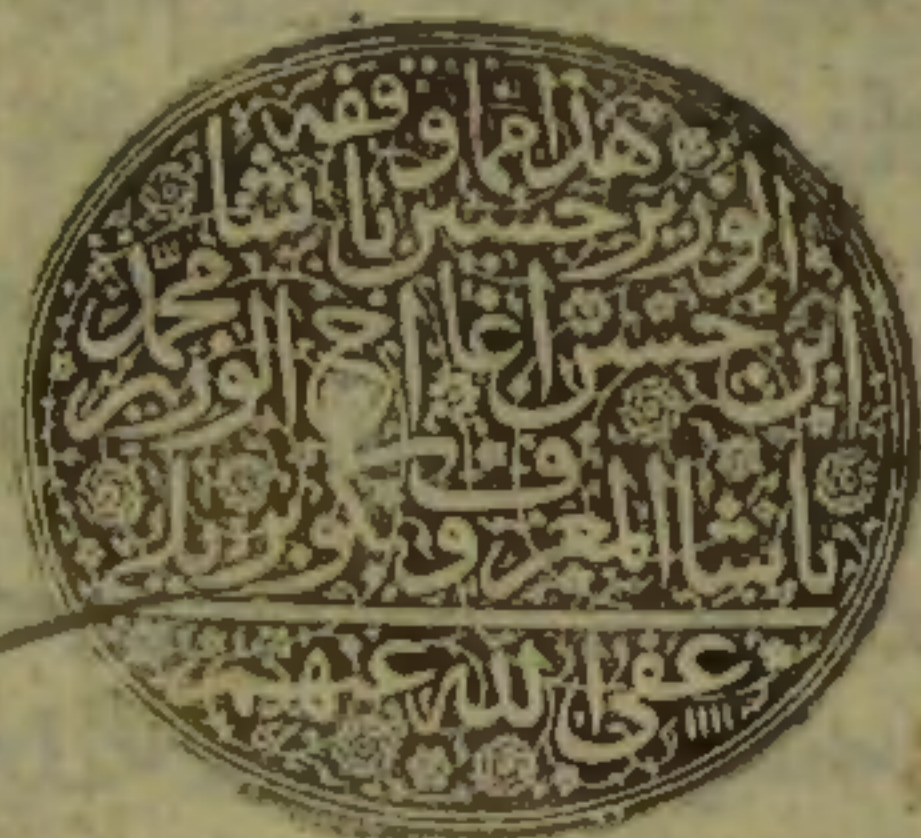 هذا مما وقفه
الوزير حسين باشا
ابن حسن اغا اخ الوزير محمد
باشا المعروف بكوپريلى
عفى الله عنهم
١١١١